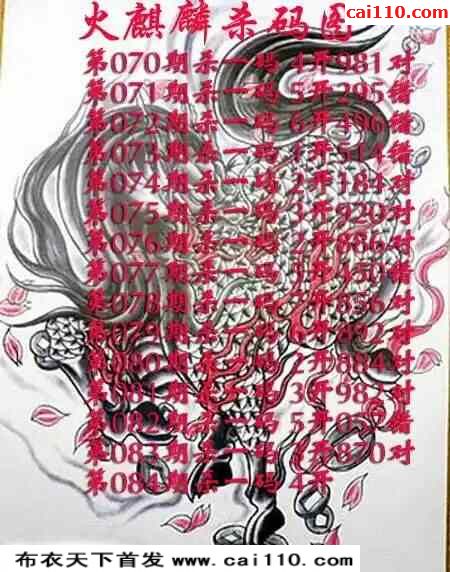 cai110.com
火麒麟杀码图
第070期杀一码 4开981对
第071期杀一码 5开295错
第072期杀一码 6开496错
第073期杀一码 1开514错
第074期杀一码 2开184对
第075期杀一码 3开920对
第076期杀一码 2开886对
第077期杀一码 5开450错
第078期杀一码 开856对
第079期杀一码 开892对
第080期杀一码 2开884对
第081期杀一码 3开982对
第082期杀一码 5开 错
第083期杀一码 开870对
第084期杀一码 4开
布衣天下首发 www.cai110.com